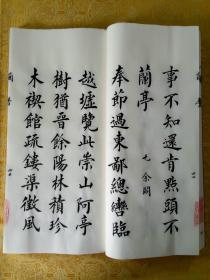 事不知還肯點頭不
蘭亭
元 余闕
奉節過東鄙總轡臨
越墟覽此崇山阿亭
樹猶晉餘陽林積珍
木禊館疏鏤渠徵風